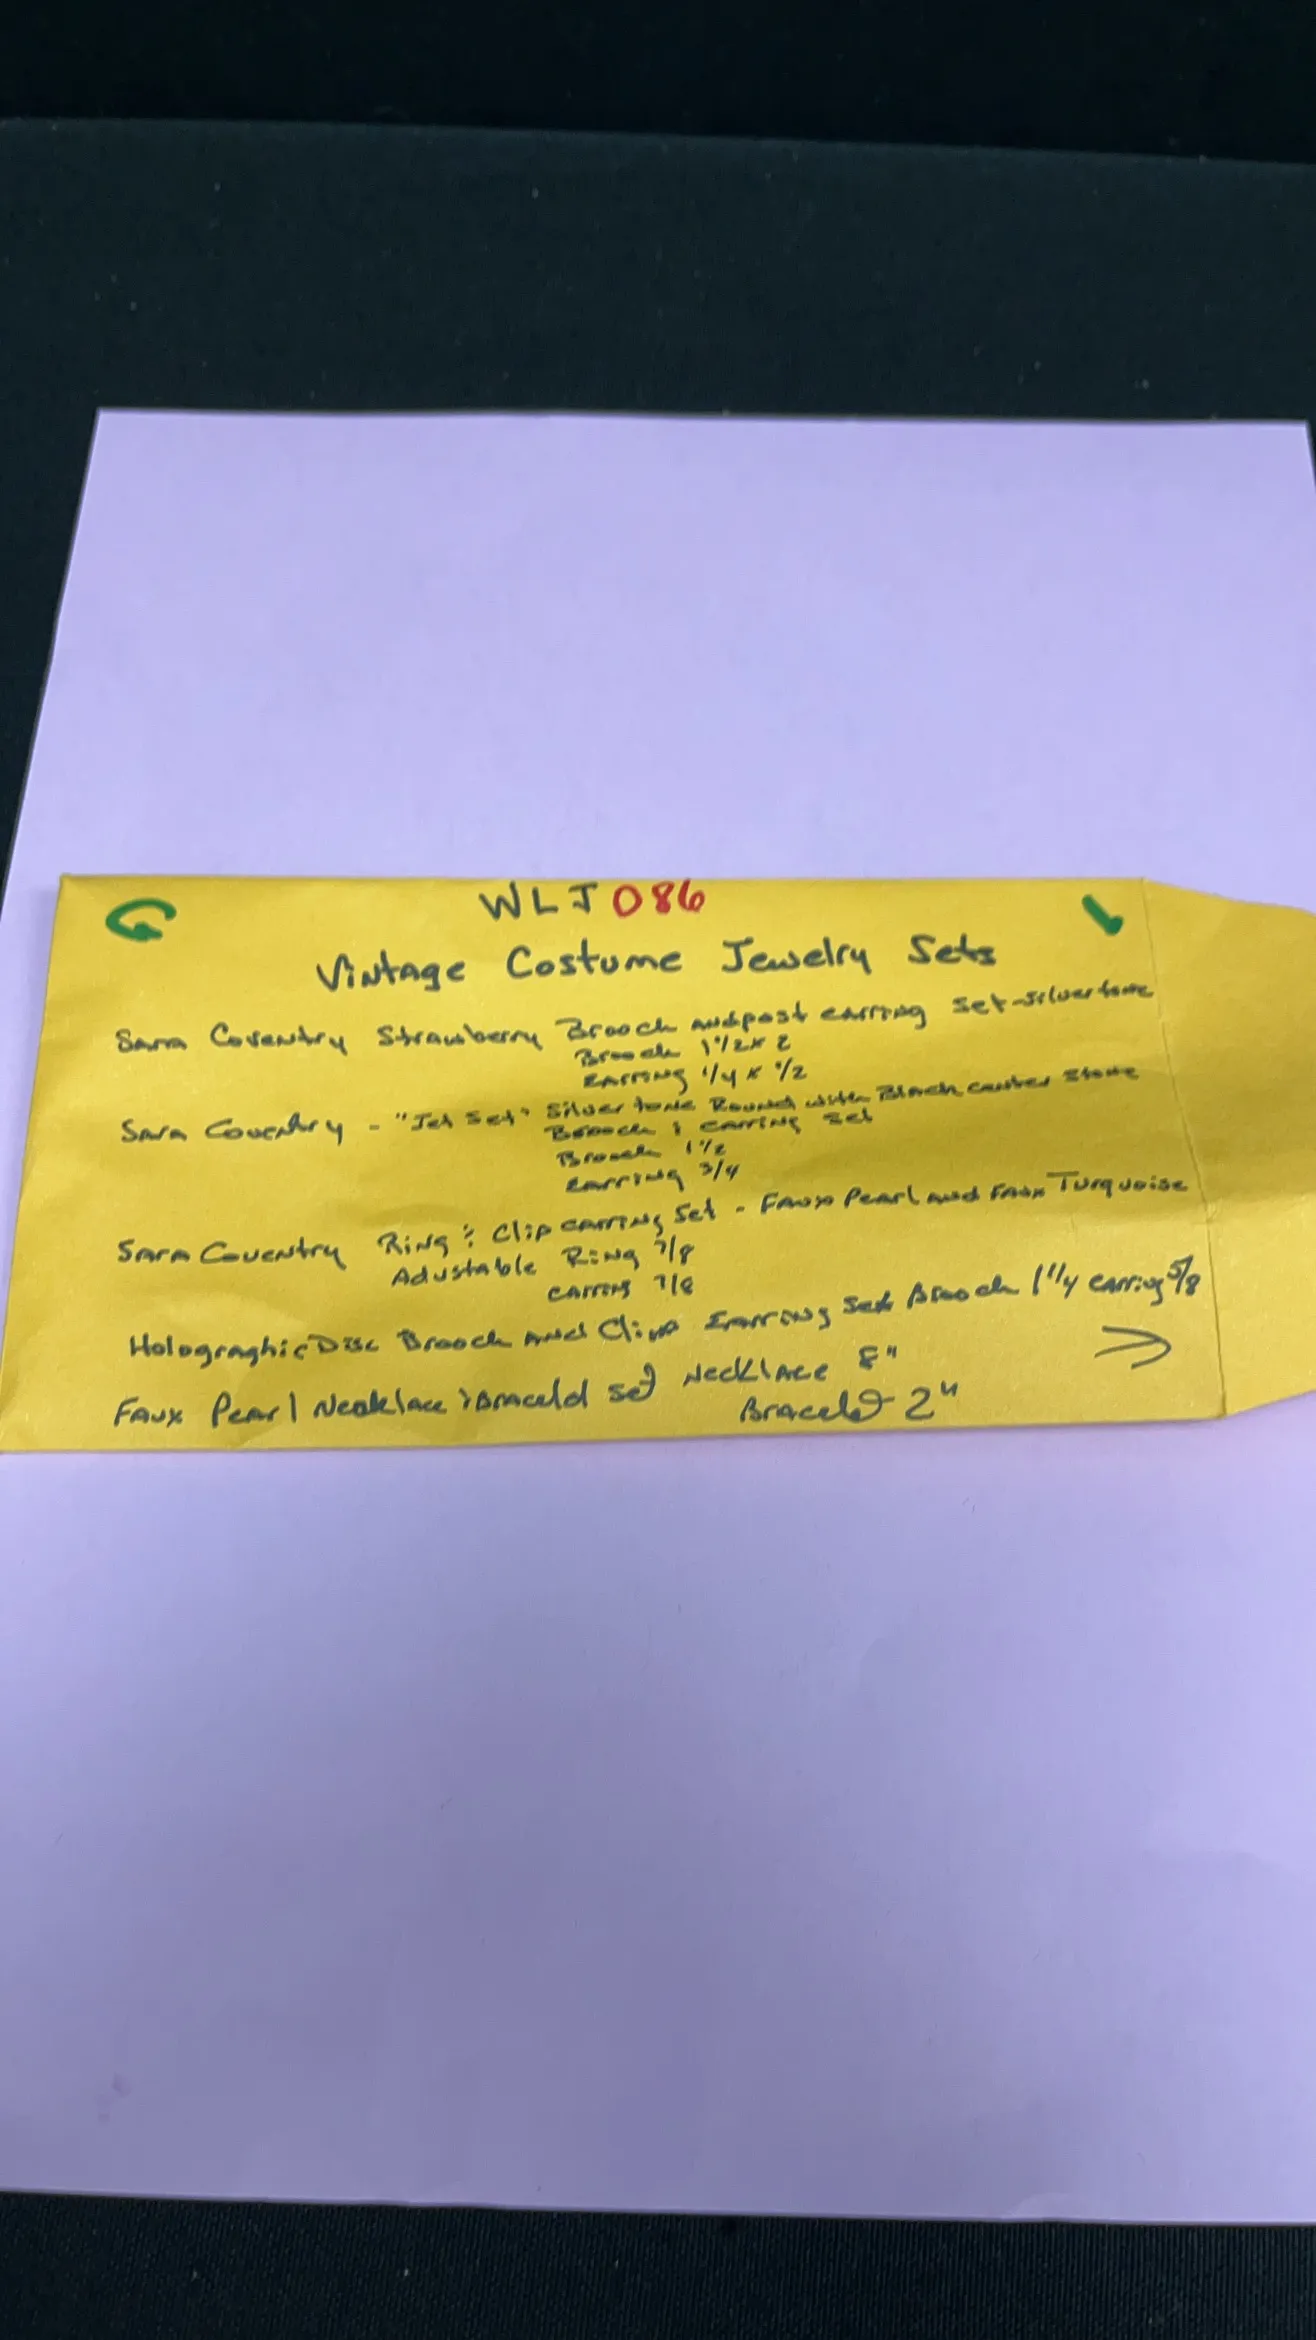 WLJ 086
Vintage Costume Jewelry Sets
Sara Coventry Strawberry Brooch and post earring set - silvertone
Brooch 1 1/2 x 2
Earring 1/4 x 1/2
Sara Coventry - "Jet Set" Silvertone Round with Black center stone
Brooch & earring set
Brooch 1 1/2
Earring 3/4
Sara Coventry Ring & Clip earring Set - Faux Pearl and Faux Turquoise
Adustable Ring 7/8
earring 7/8
Holograghic Disc Brooch and Clip Earring Set Brooch 1 1/4 earring 5/8
Faux Pearl Necklace & Bracelet set Necklace 8"
Bracelet 2"